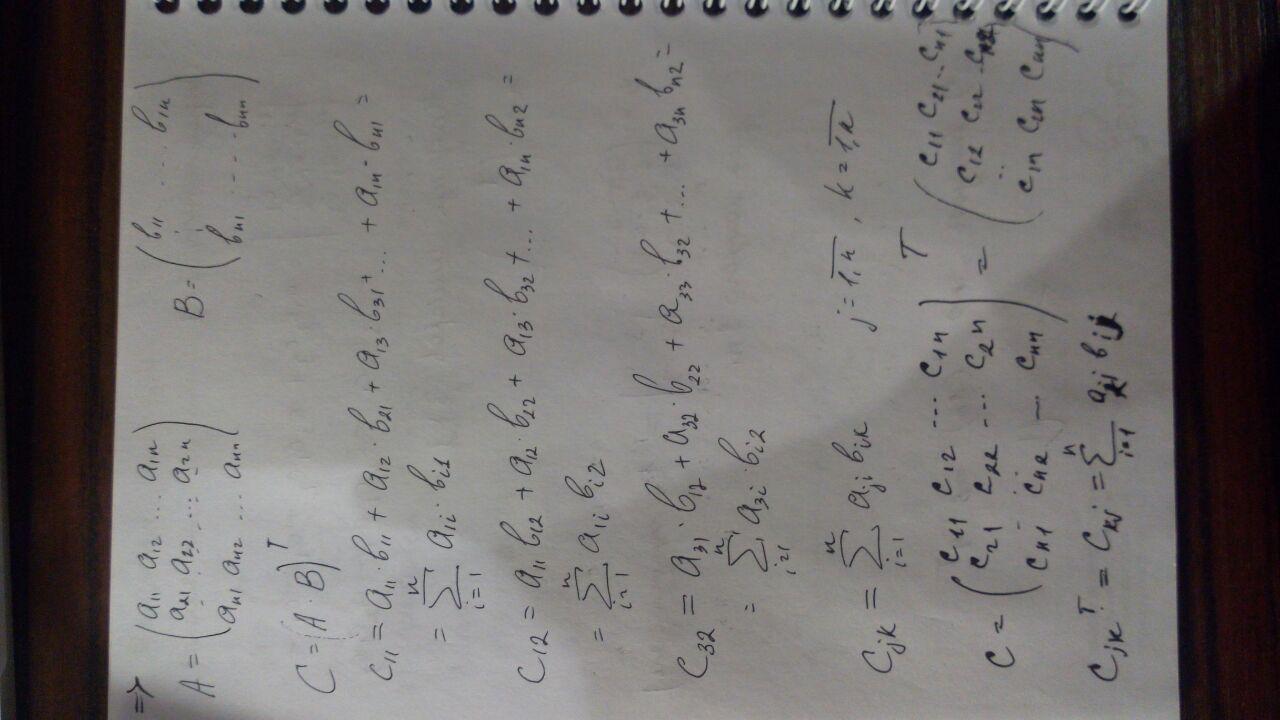 ⇒ A = ( a₁₁ a₁₂ ... a₁n    B = ( b₁₁ .... b₁n
a₂₁ a₂₂ ... a₂n    ⋮
an₁ an₂ ... ann )    bn₁ ---- bnn )
C = (A · B)ᵀ
c₁₁ = a₁₁·b₁₁ + a₁₂·b₂₁ + a₁₃·b₃₁+... + a₁n·bn₁ =
= ∑ⁿᵢ₌₁ a₁ᵢ·bᵢ₁
c₁₂ = a₁₁b₁₂ + a₁₂·b₂₂ + a₁₃·b₃₂ +... + a₁n·bn₂ =
= ∑ⁿᵢ₌₁ a₁ᵢ bᵢ₂
c₃₂ = a₃₁·b₁₂ + a₃₂·b₂₂ + a₃₃·b₃₂ +... + a₃n bn₂ =
= ∑ⁿᵢ₌₁ a₃ᵢ·bᵢ₂
Cjk = ∑ⁿᵢ₌₁ aji bik    j = 1,n , k = 1,n
C = ( c₁₁ c₁₂ ... c₁n    ᵀ = ( c₁₁ c₂₁ .. cn₁
c₂₁ c₂₂ ... c₂n    c₁₂ c₂₂
cn₁ cn₂ ... cnn )    c₁n c₂n cnn )
Cjkᵀ = Ckj = ∑ⁿᵢ₌₁